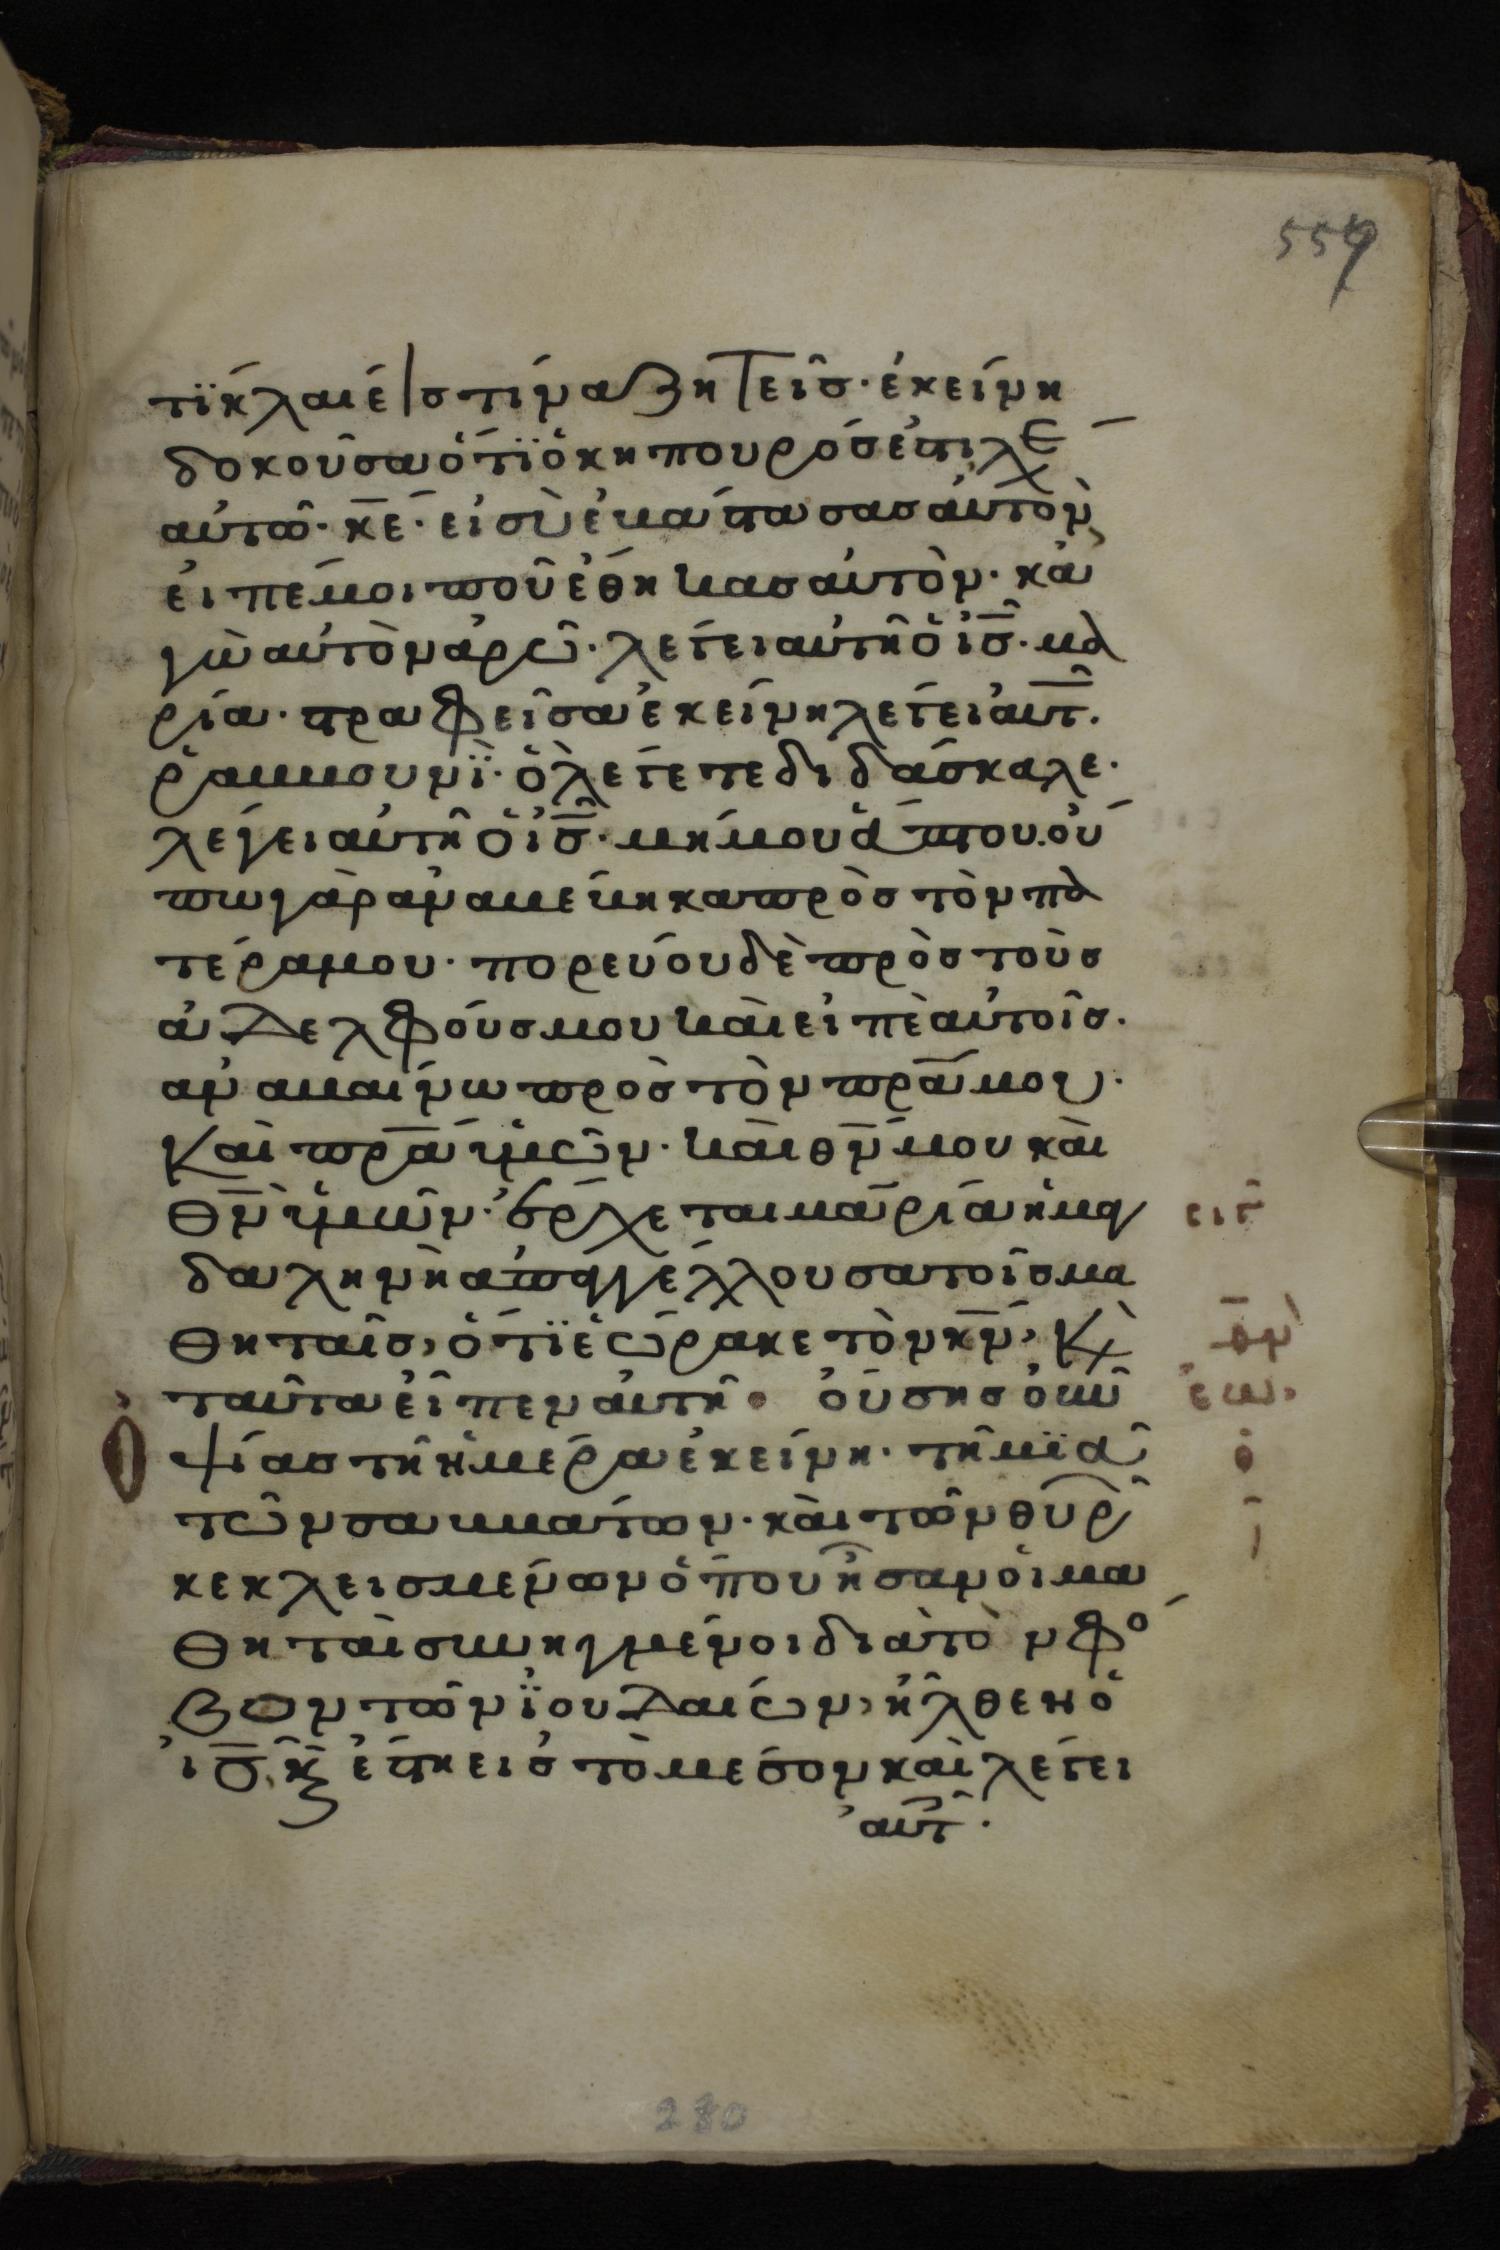 559
τϊ κλαίεις τίνα ζητεῖσ· ἐκείνη
δοκοῦσα ὅτϊ ὁ κηπουρόσ ἐστι λέ
αὐτῶ· κ̅ε· εἰ σὺ ἐβάστασασ αὐτὸν,
εἰπέ μοι ποῦ ἔθηκασ αὐτὸν· κἀ
γὼ αὐτὸν ἀρῶ· λέγει αὐτῆ ὁ ι̅σ· μα
ρία· στραφεῖσα ἐκείνη λέγει αὐτ̅·
ῥαββουνῒ· ὃ λέγεται διδάσκαλε·
λέγει αὐτῆ ὁ ι̅σ· μή μου ἅπτου· οὔ
πω γὰρ ἀναβέβηκα πρὸσ τὸν πα
τέρα μου· πορεύου δὲ πρὸσ τοὺσ
ἀδελφούσ μου καὶ εἰπὲ αὐτοῖσ·
ἀναβαίνω πρὸσ τὸν π̅ρ̅α μου·
καὶ π̅ρ̅α ὑμῶν· καὶ θ̅ν μου καὶ
θ̅ν ὑμῶν· ἔρχεται μαρία ἡ μαγ
δαληνὴ ἀπαγγέλλουσα τοῖσ μα
θηταῖσ, ὅτϊ ἑώρακε τὸν κ̅ν, κ̀
ταῦτα εἶπεν αὐτῆ· οὔσησ ὀ
ψίασ τῆ ἡμέρα ἐκείνη· τῆ μϊᾶ
τῶν σαββάτων· καὶ τῶν θυρῶ
κεκλεισμένων ὅπου ἦσαν οἱ μα
θηταὶ συνηγμένοι διὰ τὸν φό
βον τῶν ϊουδαίων, ἦλθεν ὁ
ι̅σ, κ̀ ἔστη εἰσ τὸ μέσον καὶ λέγει
αὐτ̅·
280